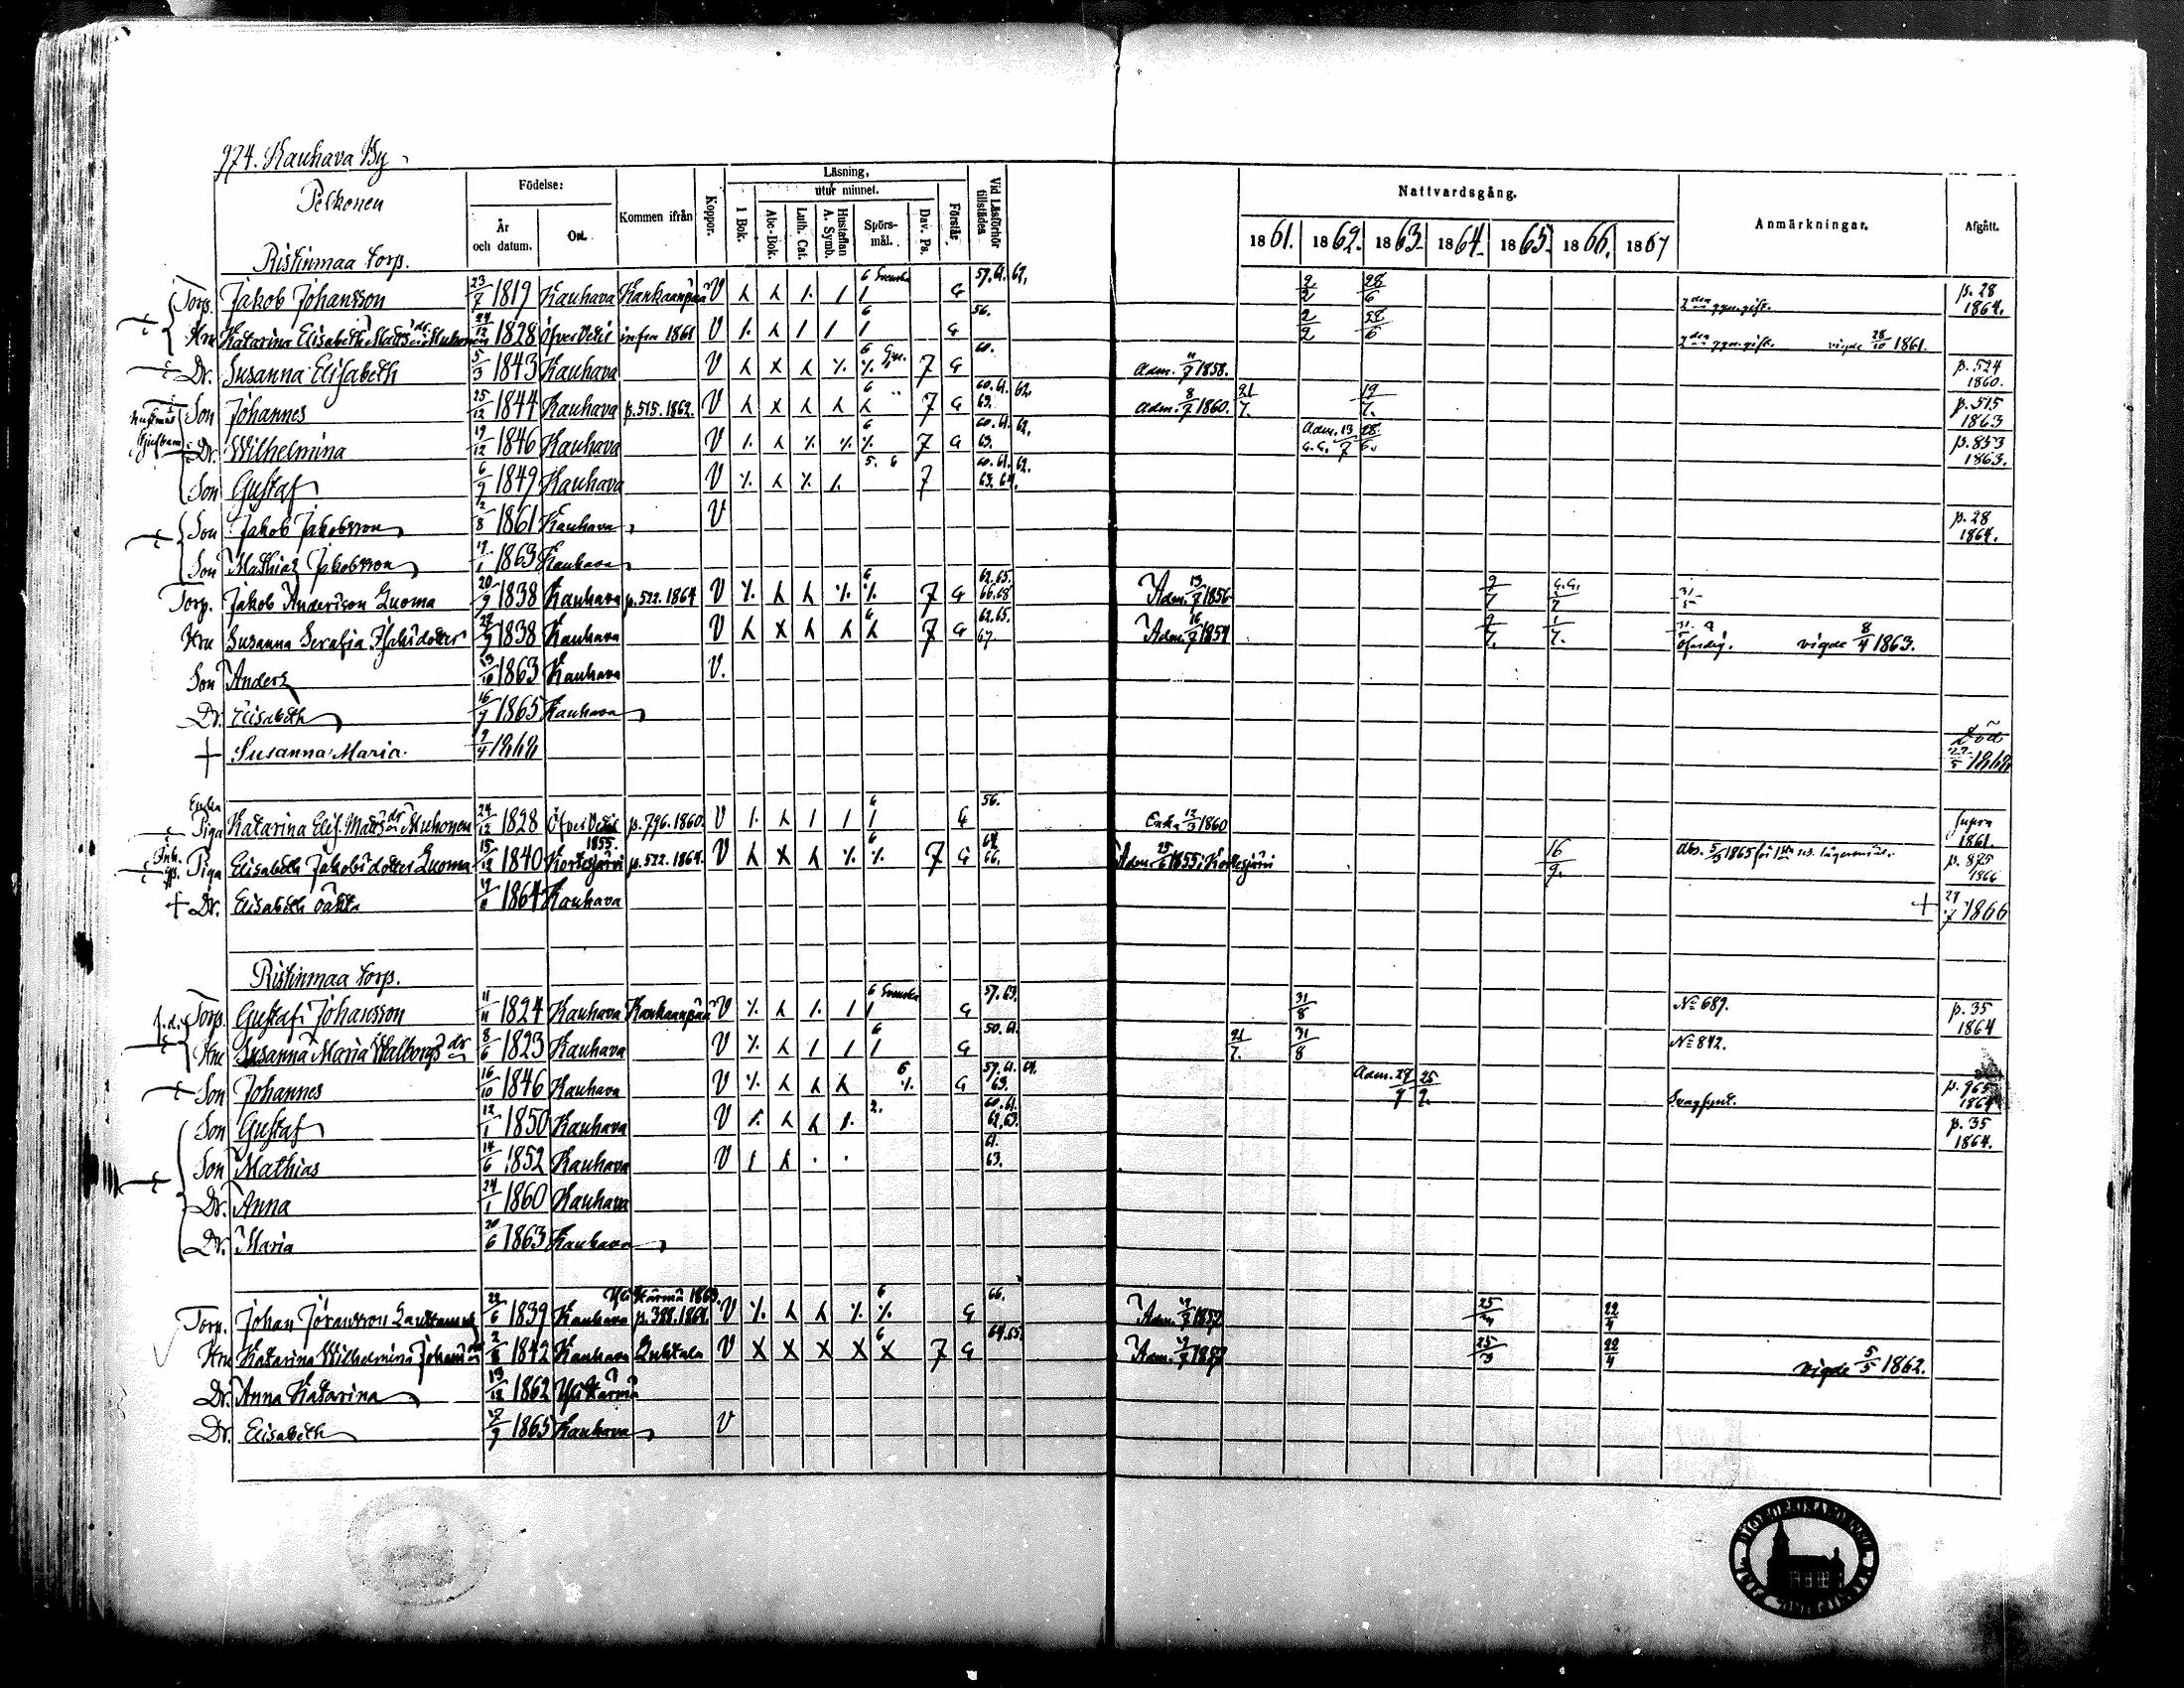 974. Kauhava By
Pelkonen
Födelse:
År och datum.
Ort.
Kommen ifrån
Koppor.
Läsning,
utur minnet.
I Bok.
Abc-Bok.
Luth. Cat.
Hustaflan A. Symb.
Spörsmål.
Dav. Ps.
Förstår
Vid Läsförhör tillstädes
Nattvardsgång.
1861. 1862. 1863. 1864. 1865. 1866. 1867
Anmärkningar.
Afgått.
Ristinmaa torp.
Torp. Jakob Johansson 23/7 1819 Kauhava Kankaanpää V 6 Svenska G 57. 61. 62. 2/2 28/6 2den ggn gift. p. 28 1864.
Hru Katarina Elisabeth Mattsdr Muhonen 24/12 1828 Öfver Vetil infra 1861 V 6 G 56. 2/2 28/6 2den ggn gift. vigde 28/10 1861.
Dr. Susanna Elisabeth 5/3 1843 Kauhava V 6 7 G 60. Adm. 11/7 1858. p. 524 1860.
Son Johannes 25/12 1844 Kauhava p. 515. 1862. V 6 7 G 60. 61. 62. 63. Adm. 8/7 1860. 21/7. 19/7. p. 515 1863
Dr. Wilhelmina 19/12 1846 Kauhava V 6 7 G 60. 61. 62. 63. Adm. 13/7 28/6. p. 853 1863.
Son Gustaf 6/9 1849 Kauhava V 5. 6 7 60. 61. 62. 63. 64.
Son Jakob Jakobsson 12/8 1861 Kauhava V p. 28 1864.
Son Mathias Jakobsson 17/1 1863 Kauhava
Torp. Jakob Andersson Luoma 20/9 1838 Kauhava p. 522. 1864 V 6 7 G 62. 65. 66. 68 Adm. 13/7 1856 9/7 31/5
Hru Susanna Serafia Isaksdotter 1838 Kauhava V 6 7 G 62. 65. 67. Adm. 16/7 1854 9/7. 1/7. Ofärdig. vigde 8/4 1863.
Son Anders 13/10 1863 Kauhava V.
Dr. Elisabeth 16/7 1865 Kauhava
+ Susanna Maria. 9/4 1868 Död 22/5 1868
Enka Piga Katarina Elis. Mattsdr Muhonen 24/12 1828 Öfver Vetil p. 796. 1860. V 6 G 56. Enka 12/3 1860 supra 1861.
Inh. Piga Elisabeth Jakobsdotter Luoma 15/12 1840 1855. Kortesjärvi p. 522. 1864. V 6 7 G 64. 66. Adm. 25/6 1855 i Kortesjärvi 16/9. Abs. 5/3 1865 för 1sta res. lägersmål. p. 875 1866
+ Dr. Elisabeth oäkta 17/11 1864 Kauhava + 27/7 1866
Ristinmaa torp.
f. d. Torp. Gustaf Johansson 11/11 1824 Kauhava Kankaanpää V 6 Svenska G 57. 63. 31/8 No 689. p. 35 1864
Hru Susanna Maria Walborgsdr 8/6 1823 Kauhava V 6 G 50. 61. 21/7. 31/8 No 842.
Son Johannes 16/10 1846 Kauhava V 6 G 57. 61. 63. Adm. 25/9. Svagsynt. p. 965 1864
Son Gustaf 12/1 1850 Kauhava V 2. 60. 61. 62. 63. p. 35 1864.
Son Mathias 14/6 1852 Kauhava V 61. 63.
Dr. Anna 24/1 1860 Kauhava
Dr. Maria 20/6 1863 Kauhava
Torp. Johan Jöransson 22/6 1839 Kauhava Yli Härmä 1863. p. 388. 1864. V 6 G 66. 22/4
Hru Katarina Wilhelmina Johansdr 2/8 1842 Kauhava Huhtala V X X X X X 6 7 G 64. 65. 25/3 22/4 vigde 5/5 1862.
Dr. Anna Katarina 13/12 1862 Yli Härmä
Dr. Elisabeth 1865 Kauhava V